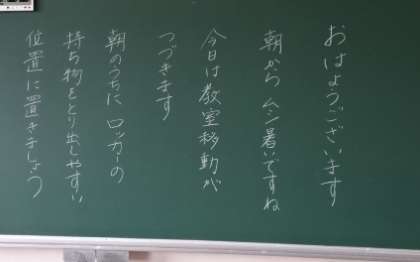 おはようございます
朝から ムシ暑いですね
今日は教室移動が
つづきます
朝のうちに ロッカーの
持ち物をとり出しやすい
位置に置きましょう